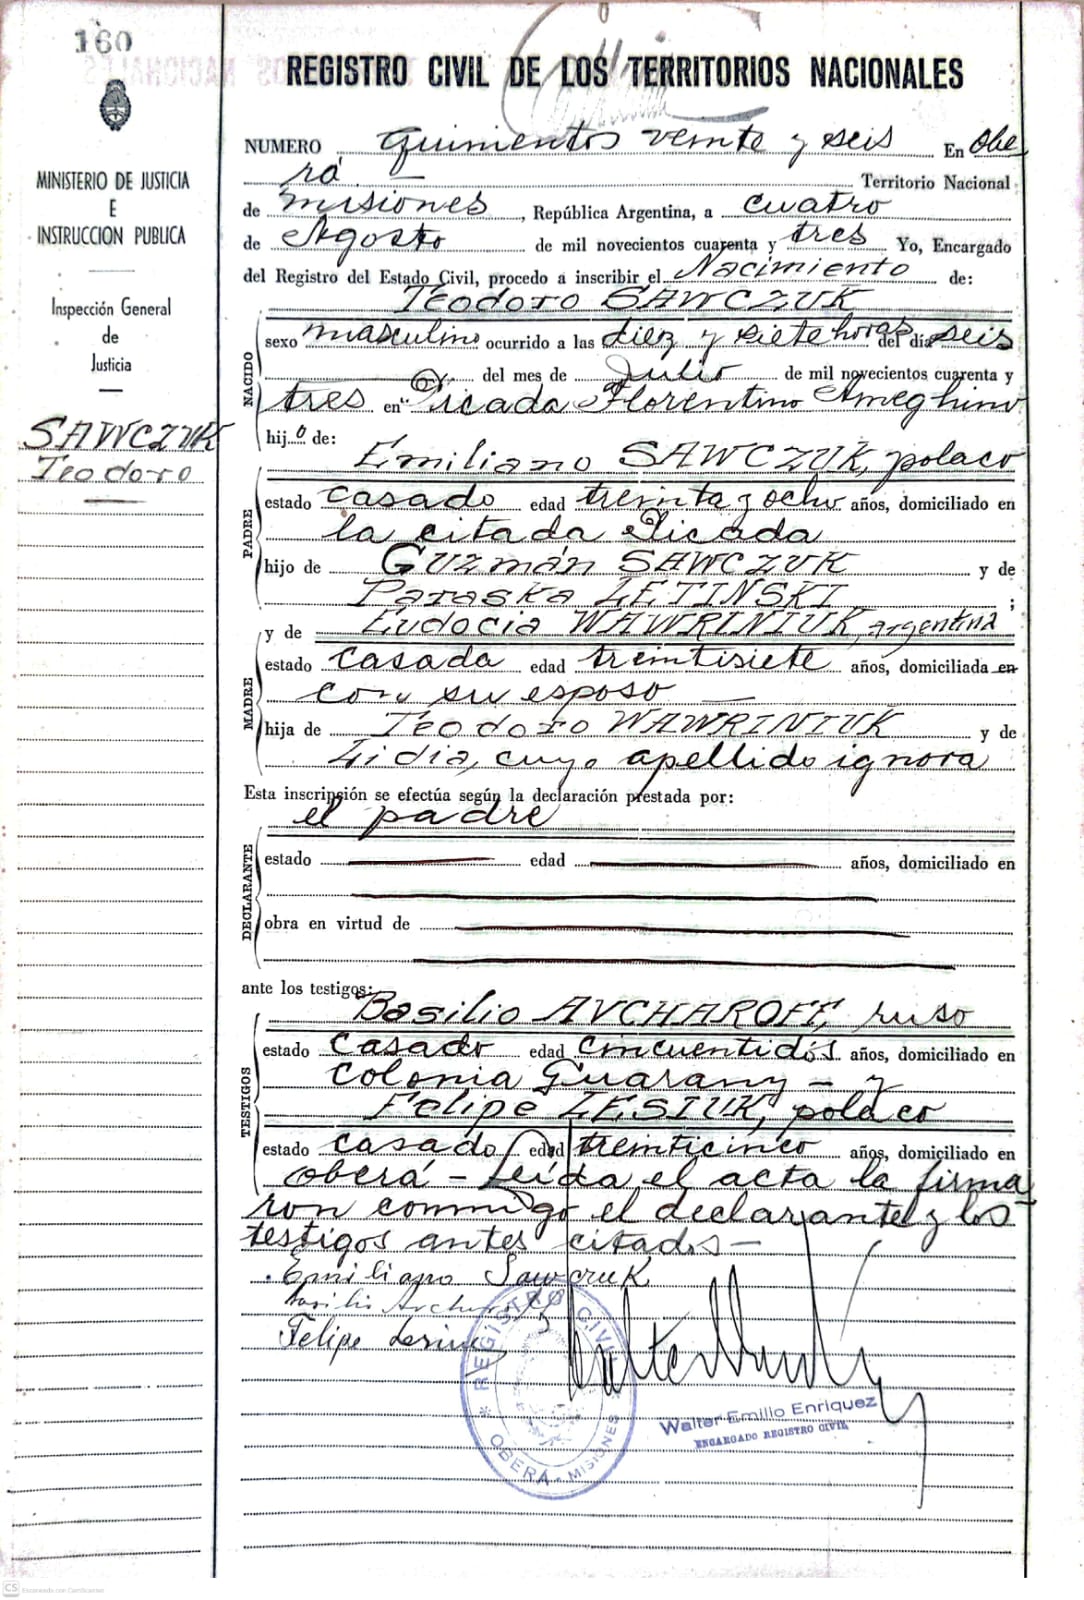 160
REGISTRO CIVIL DE LOS TERRITORIOS NACIONALES
MINISTERIO DE JUSTICIA
E
INSTRUCCION PUBLICA
Inspección General
de
Justicia
SAWCZUK
Teodoro
NUMERO quinientos veinte y seis En Obe
rá Territorio Nacional
de misiones, República Argentina, a cuatro
de Agosto de mil novecientos cuarenta y tres Yo, Encargado
del Registro del Estado Civil, procedo a inscribir el Nacimiento de:
Teodoro SAWCZUK
NACIDO
sexo masculino ocurrido a las diez y siete horas del día seis
del mes de Julio de mil novecientos cuarenta y
tres en Picada Florentino Ameghino
hijo de:
Emiliano SAWCZUK, polaco
PADRE
estado casado edad treinta y ocho años, domiciliado en
la citada Picada
hijo de Guzmán SAWCZUK y de
Paraska ZETINSKI ;
y de Eudocia WAWRINIUK, argentina
MADRE
estado casada edad treintisiete años, domiciliada en
con su esposo
hija de Teodoro WAWRINIUK y de
Lidia, cuyo apellido ignora
Esta inscripsión se efectúa según la declaración prestada por:
el padre
DECLARANTE
estado edad años, domiciliado en
obra en virtud de
ante los testigos:
Basilio AVCHAROFF, ruso
TESTIGOS
estado casado edad cincuentidós años, domiciliado en
colonia Guarany - y
Felipe LESIUK, polaco
estado casado edad treinticinco años, domiciliado en
oberá - Leída el acta la firma
ron conmigo el declarante y los
testigos antes citados -
Emiliano Sawczuk
Basilio Avcharoff
Felipe
REGISTRO CIVIL
OBERÁ - MISIONES
Walter Emilio Enriquez
ENCARGADO REGISTRO CIVIL
CS Escaneado con CamScanner